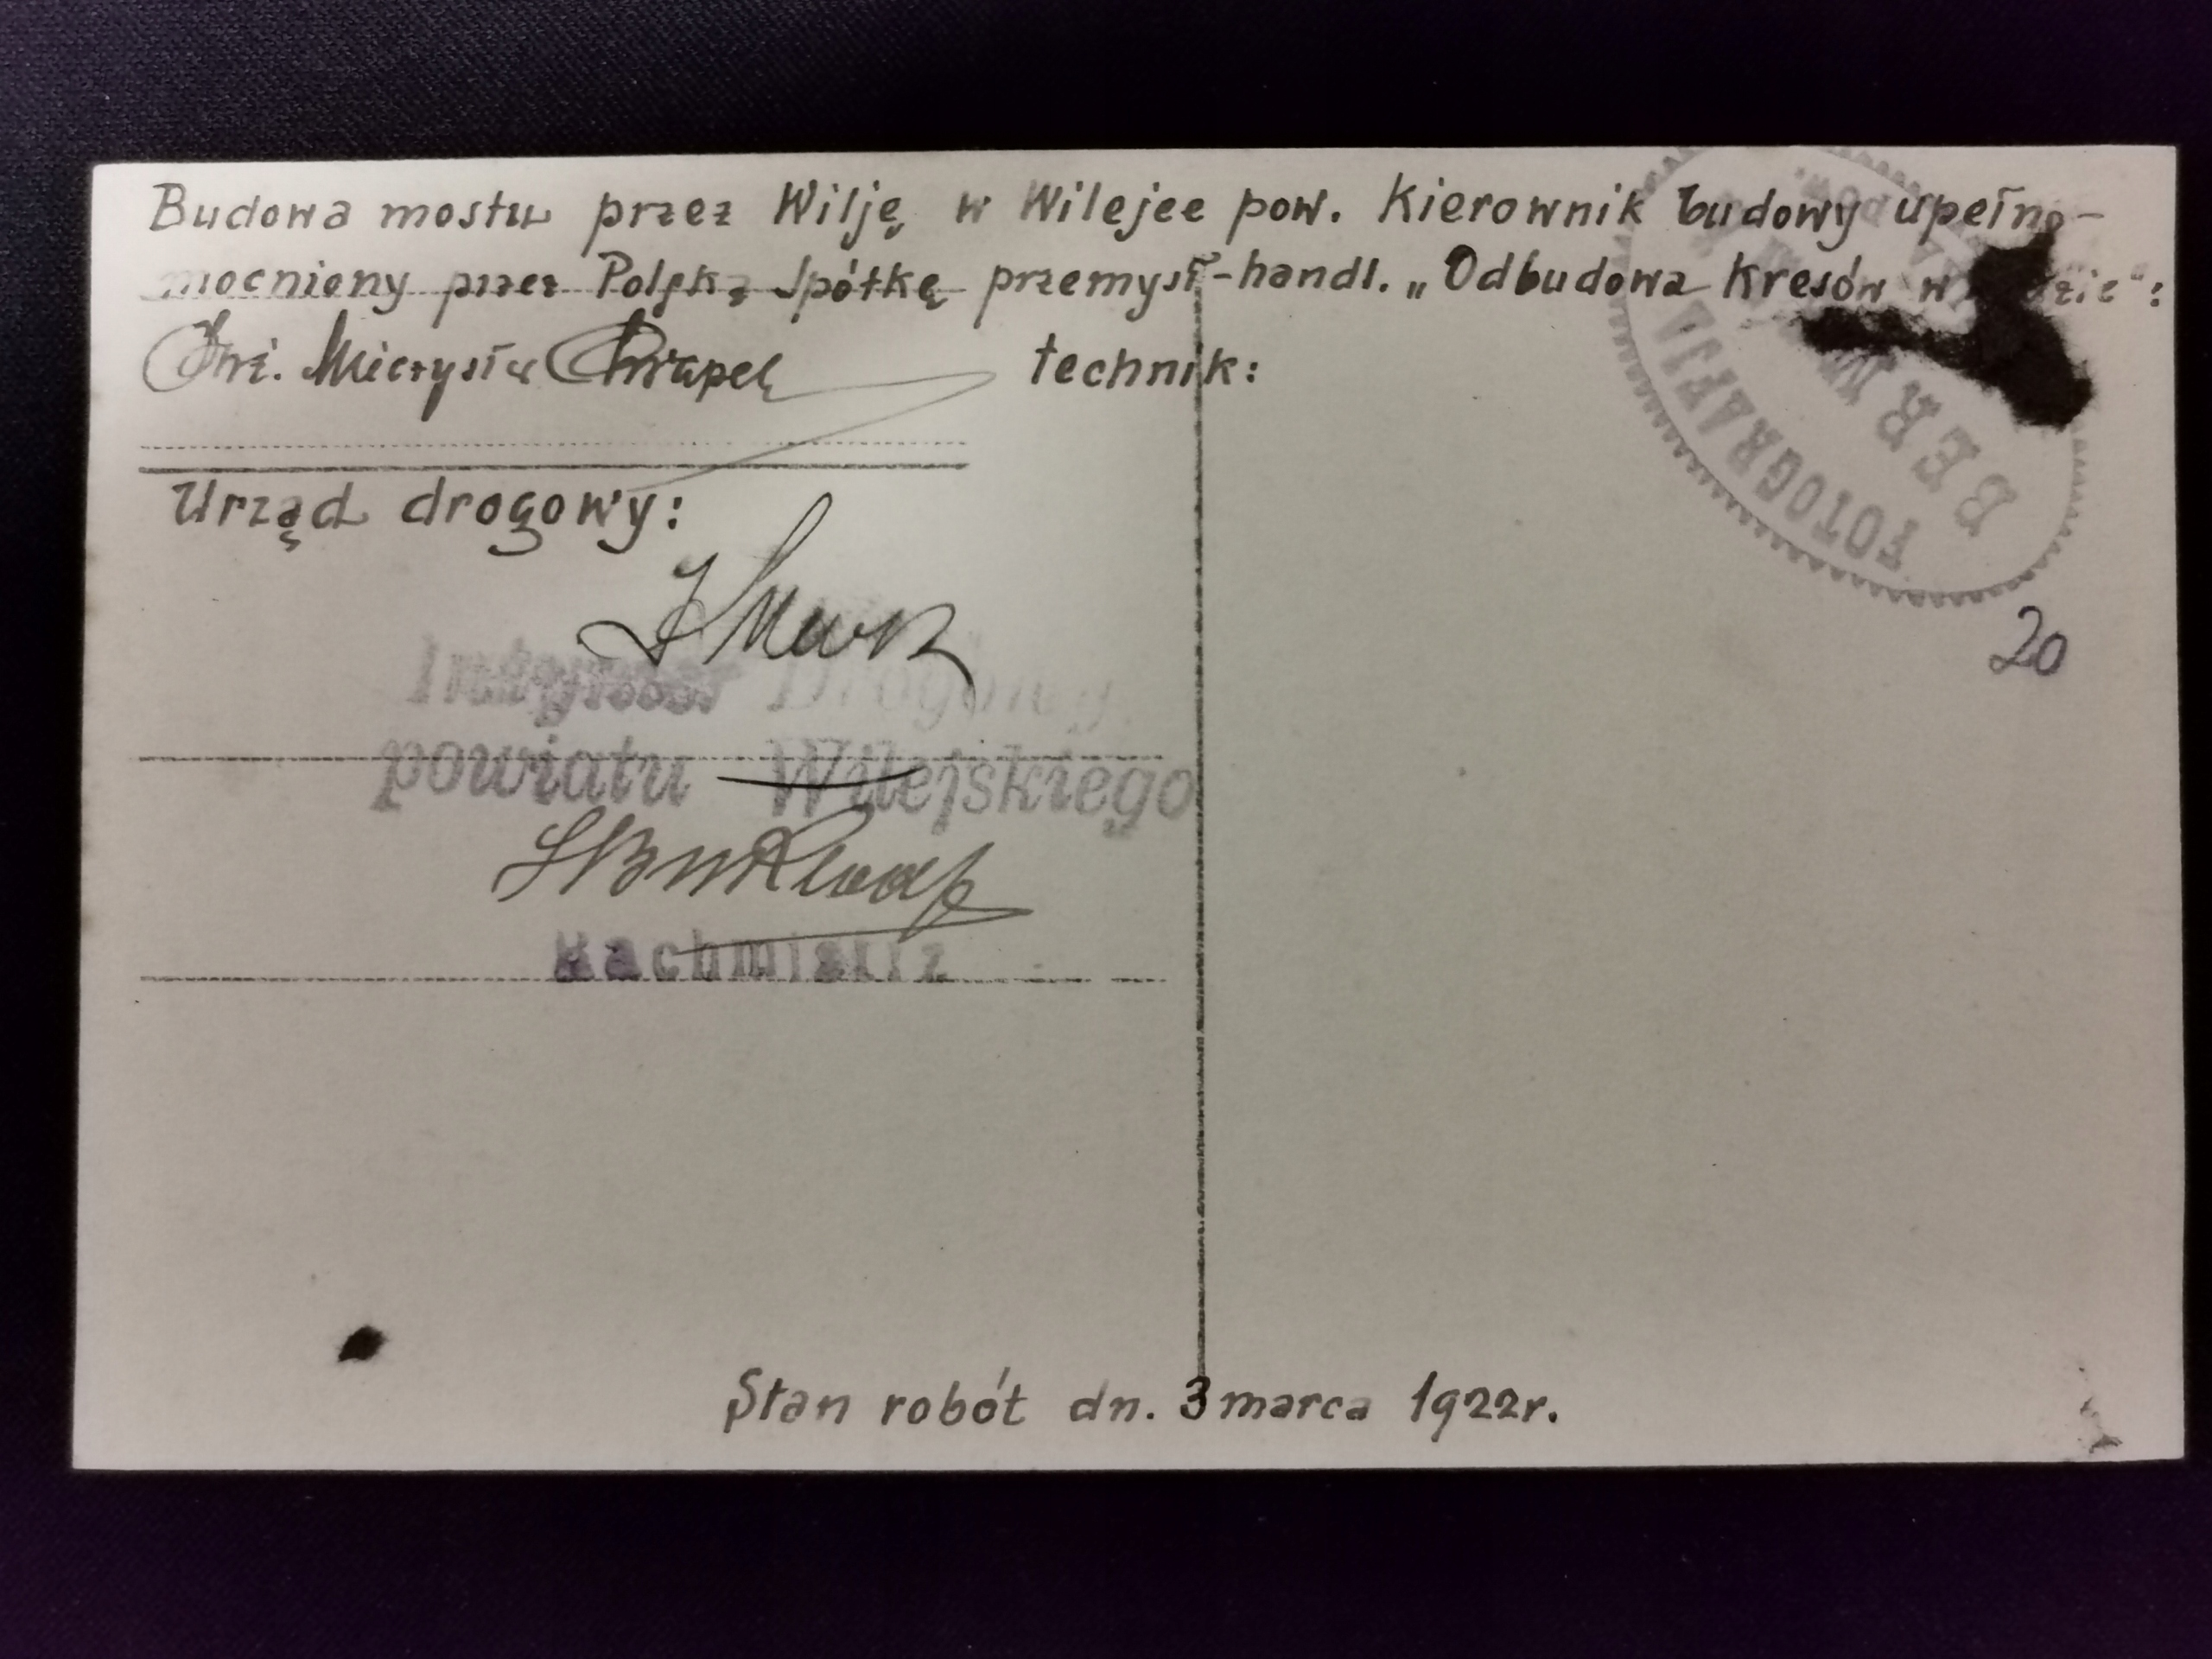 Budowa mostu przez Wilję w Wilejce pow. Kierownik budowy upełno-
mocniony przez Polską Spółkę przemysł-handl. „Odbudowa Kresów w
Inż. Mieczysław technik:
Urząd drogowy:
Drogowy
powiatu Wilejskiego
Rachmistrz
FOTOGRAFJA
BERMAN
20
Stan robót dn. 3 marca 1922r.